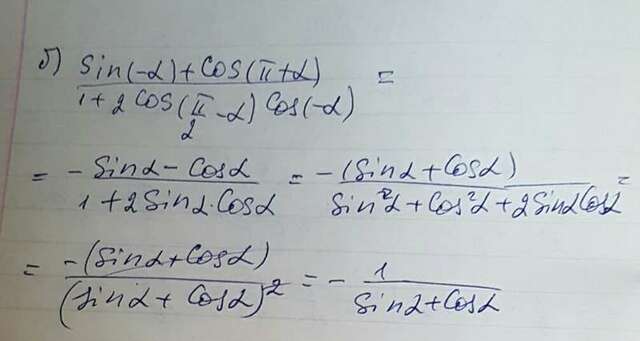 б) sin(-α)+cos(π+α) / 1+2cos(π/2-α)cos(-α) =
= -sinα-cosα / 1+2sinα·cosα = -(sinα+cosα) / sin²α+cos²α+2sinαcosα =
= -(sinα+cosα) / (sinα+cosα)² = - 1 / sinα+cosα